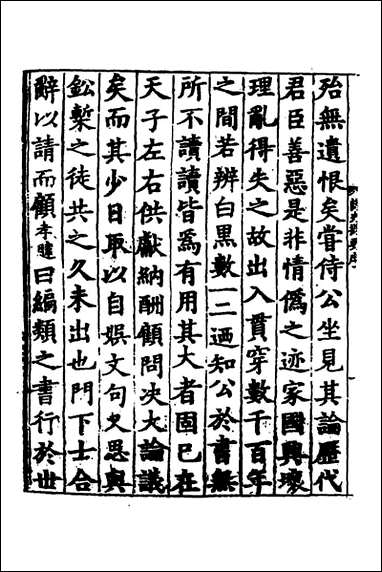 殆無遺恨矣嘗侍公坐見其論歷代
君臣善惡是非情僞之迹家國興壞
理亂得失之故出入貫穿數千百年
之間若辨白黑數一二迺知公於書無
所不讀讀皆爲有用其大者固已在
天子左右供獻納酬顧問决大論議
矣而其少日取以自娱文句又思與
鈆槧之徒共之久未出也門下士合
辭以請而顧李隨曰編類之書行於世